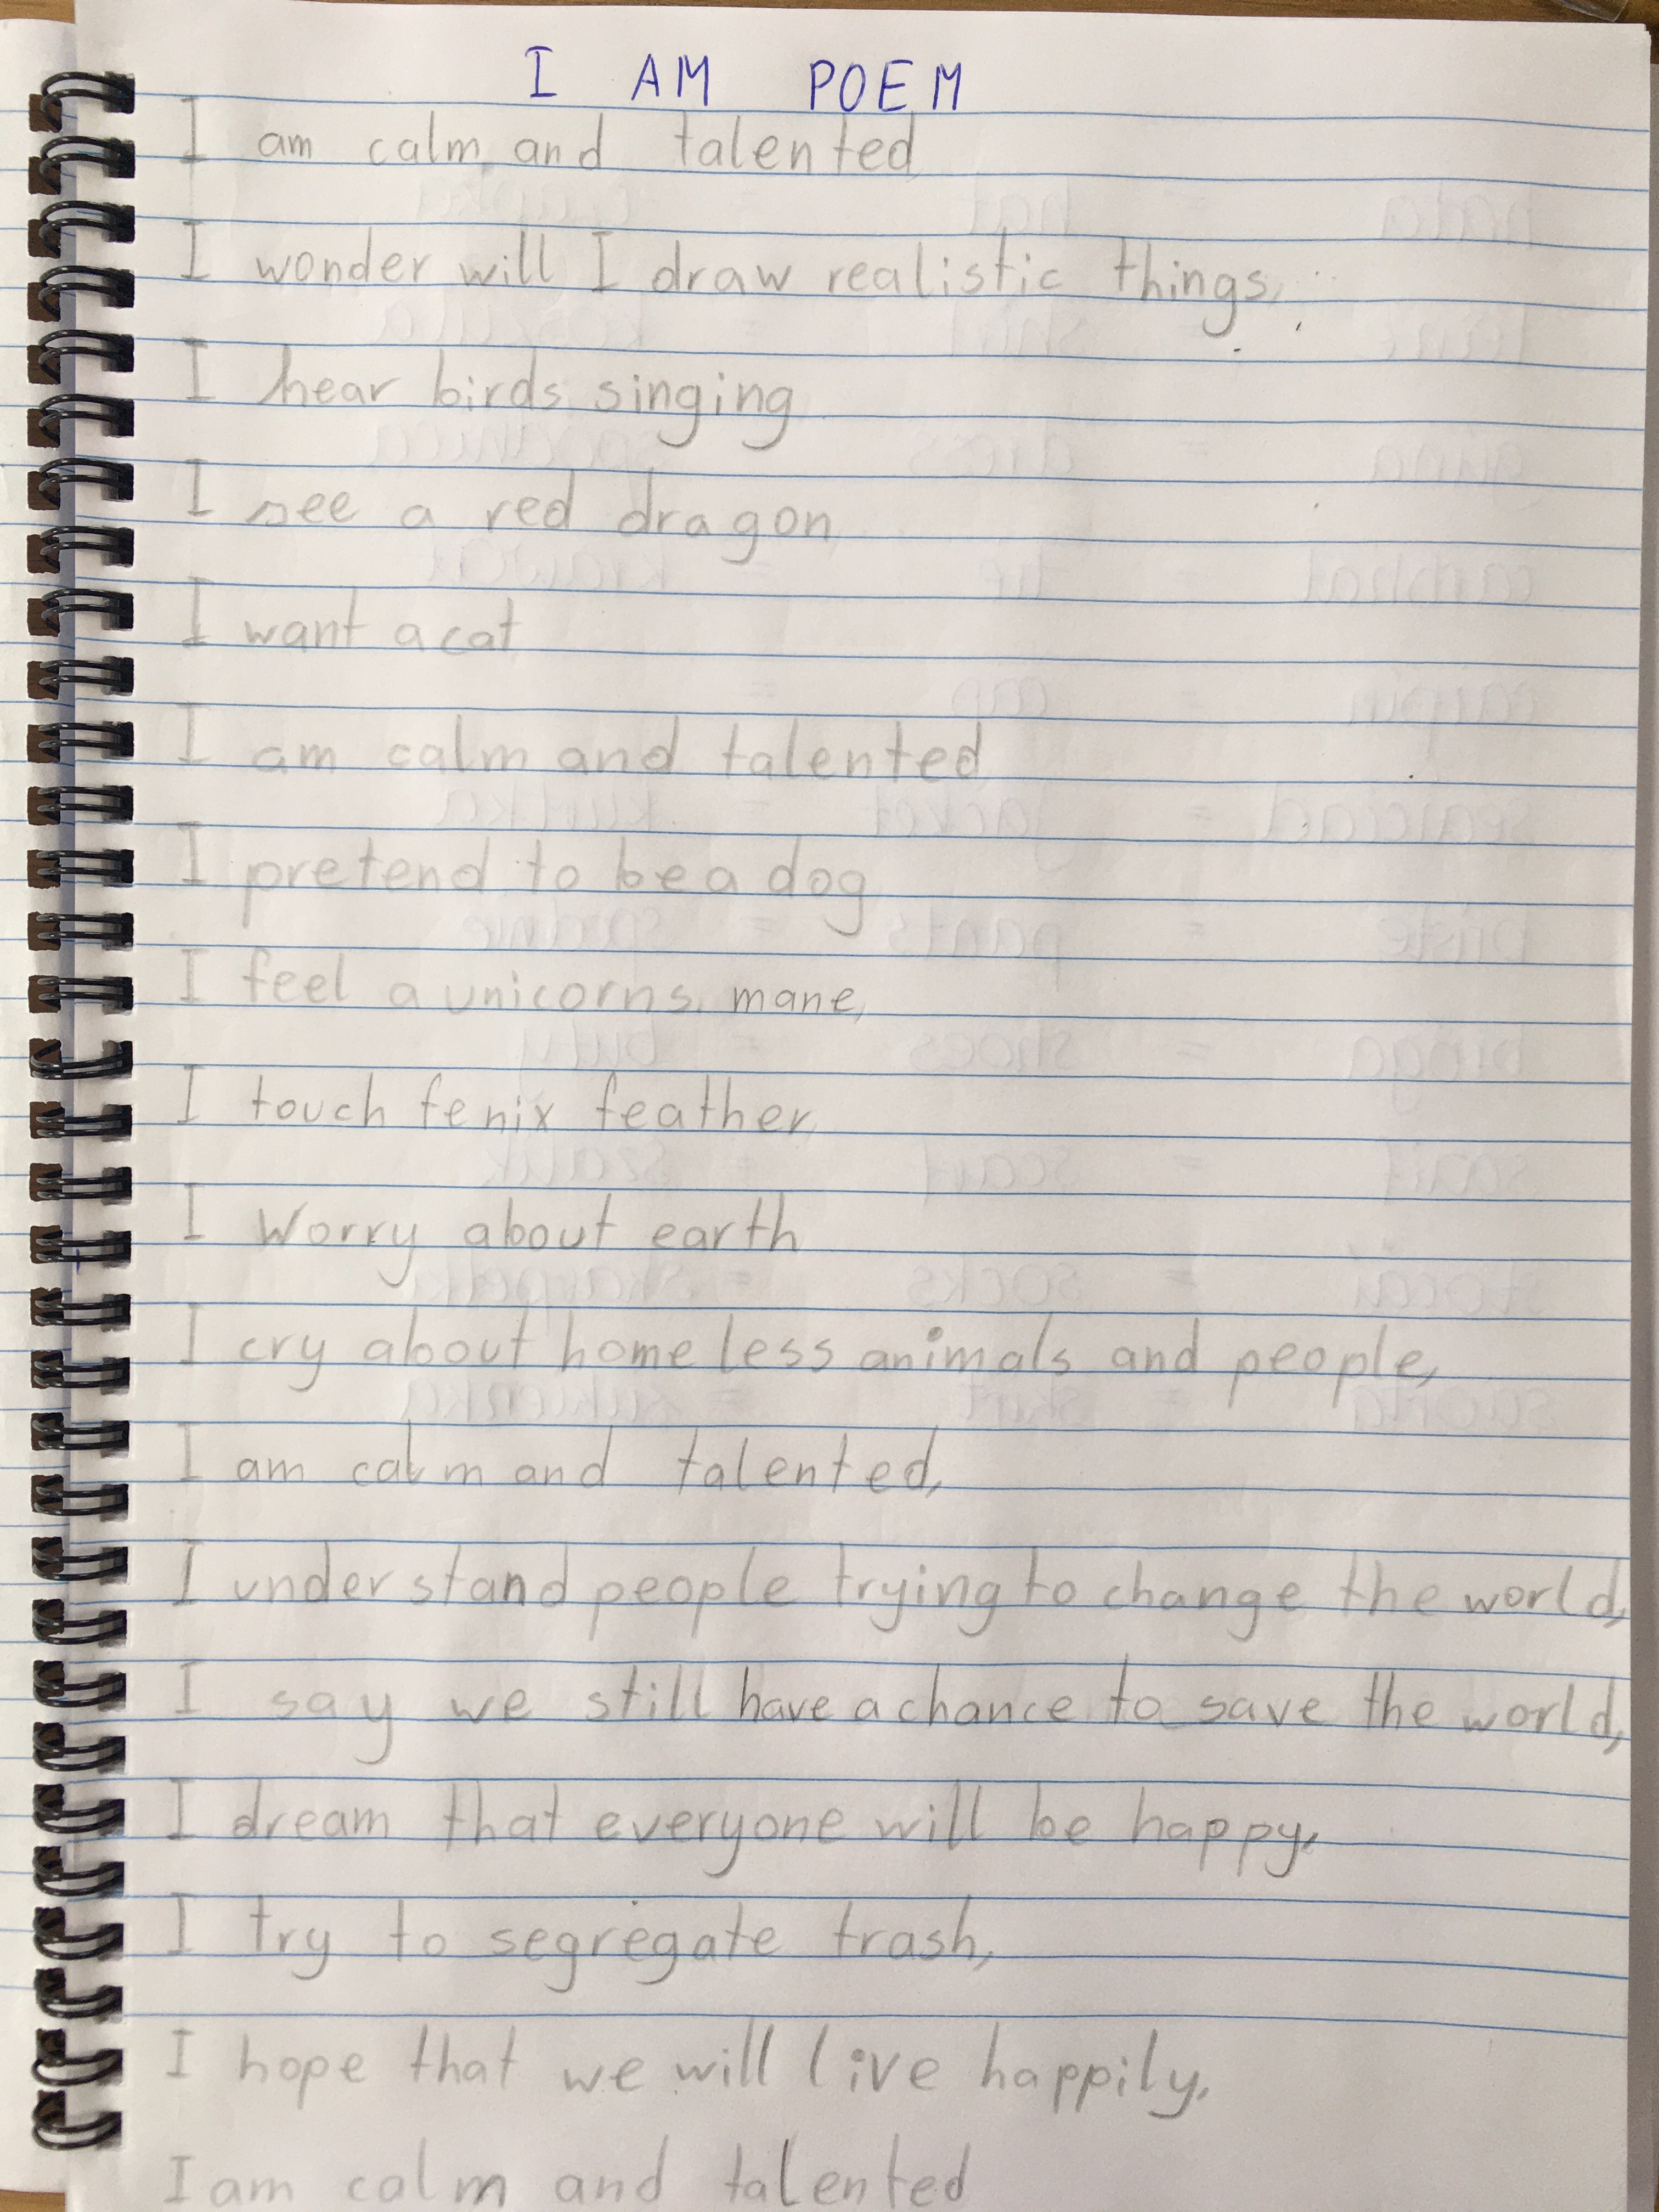 I AM POEM
I am calm and talented
I wonder will I draw realistic things,
I hear birds singing
I see a red dragon
I want a cat
I am calm and talented
I pretend to be a dog
I feel a unicorns mane,
I touch fenix feather,
I worry about earth
I cry about homeless animals and people,
I am calm and talented,
I understand people trying to change the world,
I say we still have a chance to save the world,
I dream that everyone will be happy,
I try to segregate trash,
I hope that we will live happily,
I am calm and talented